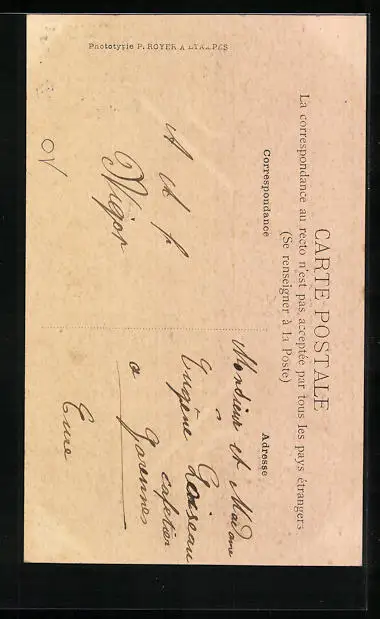 CARTE POSTALE
La correspondance au recto n'est pas acceptée par tous les pays étrangers
(Se renseigner à la Poste)
Correspondance
Adresse
Monsieur et Madame
Eugène Loiseau
cafetier
a Garennes
Eure
Phototypie P. ROYER A